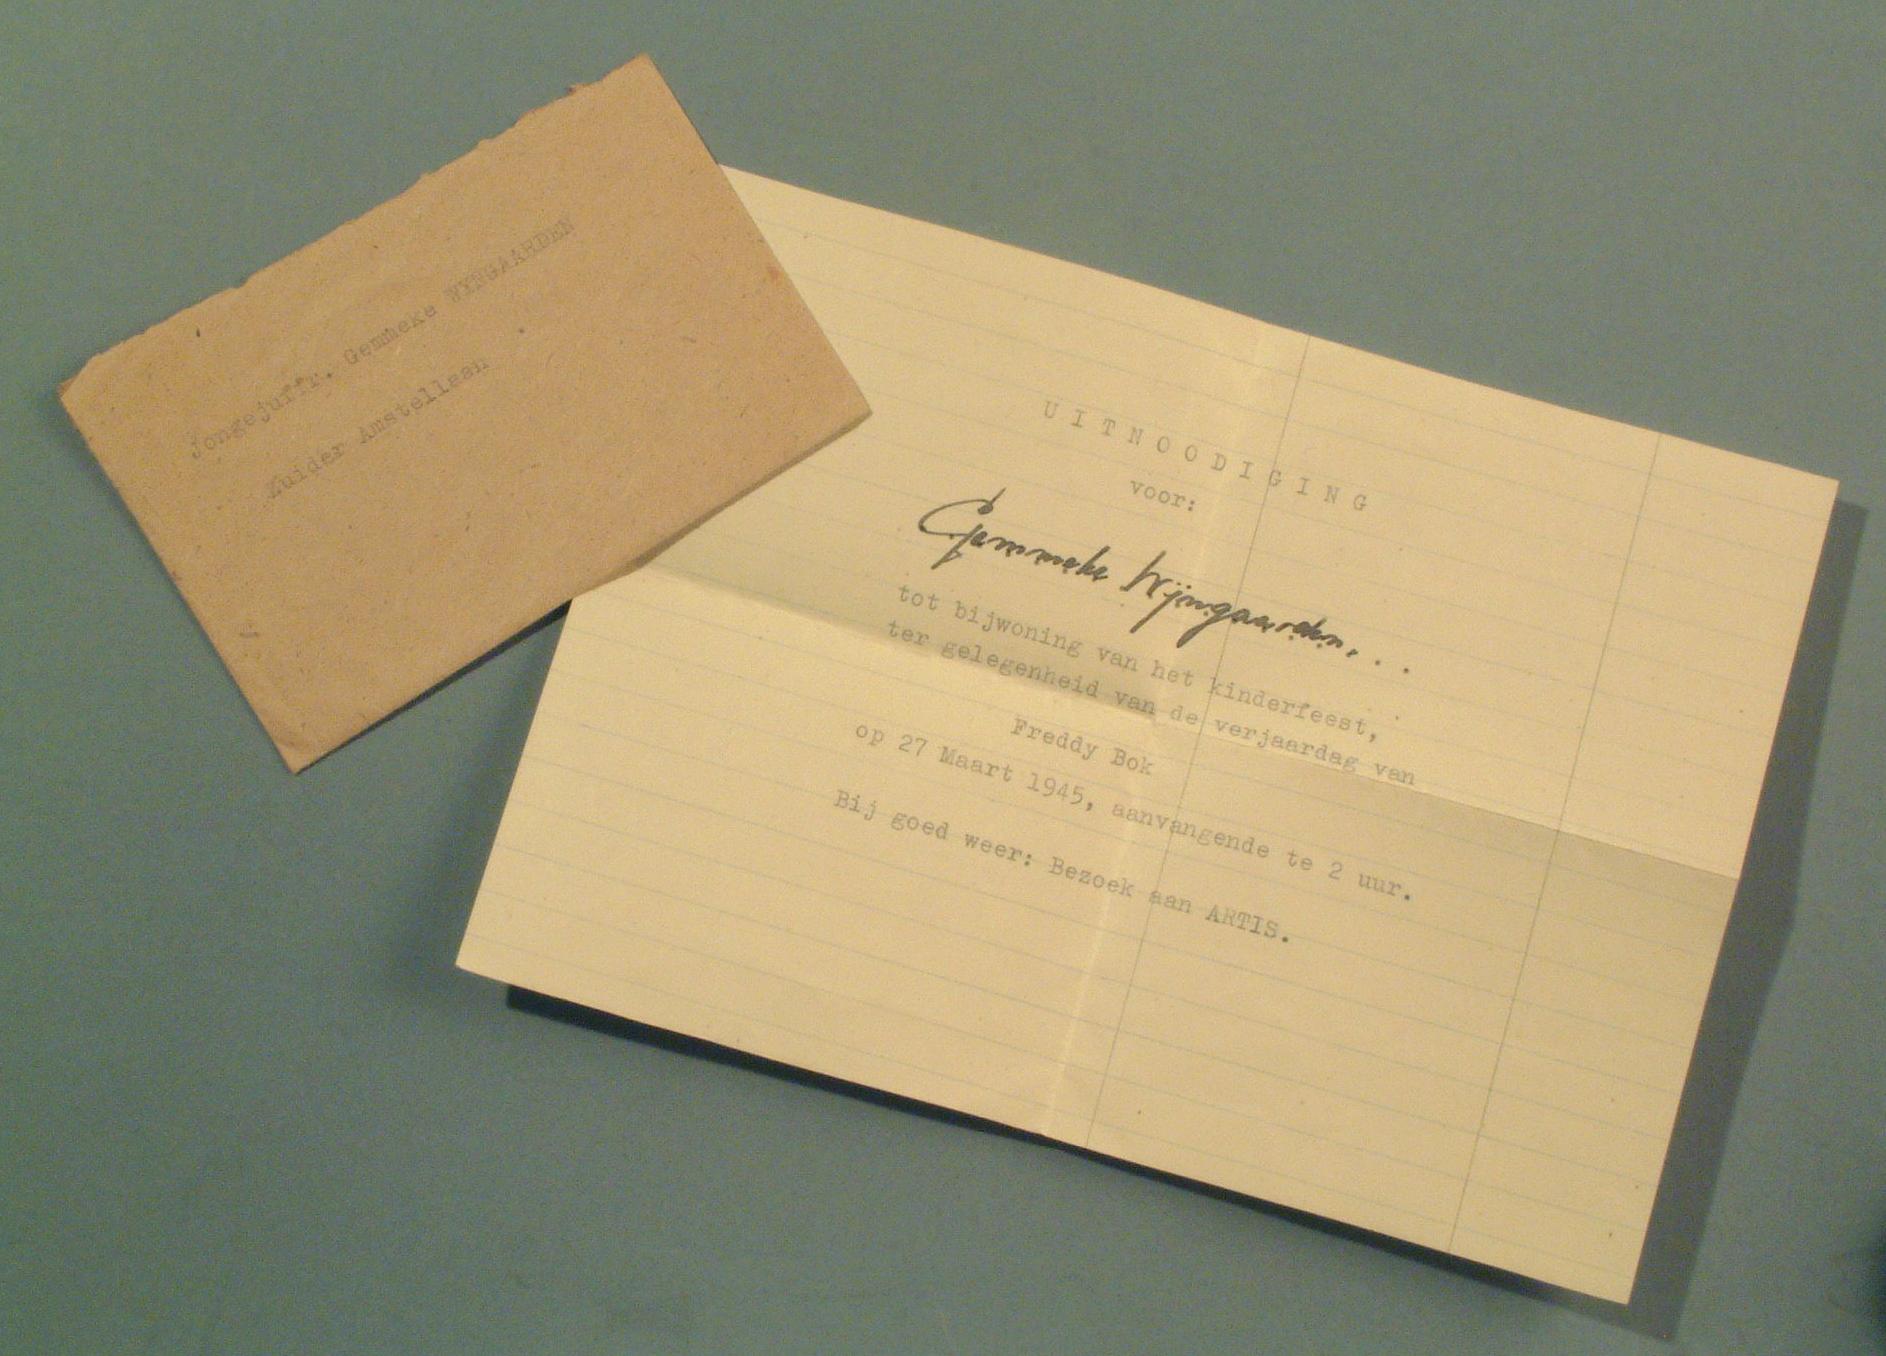 Jongejuffr. Gemmeke WYNGAARDEN
Zuider Amstellaan
UITNOODIGING
voor:
Gemmeke Wijngaarden...
tot bijwoning van het kinderfeest,
ter gelegenheid van de verjaardag van
Freddy Bok
op 27 Maart 1945, aanvangende te 2 uur.
Bij goed weer: Bezoek aan ARTIS.